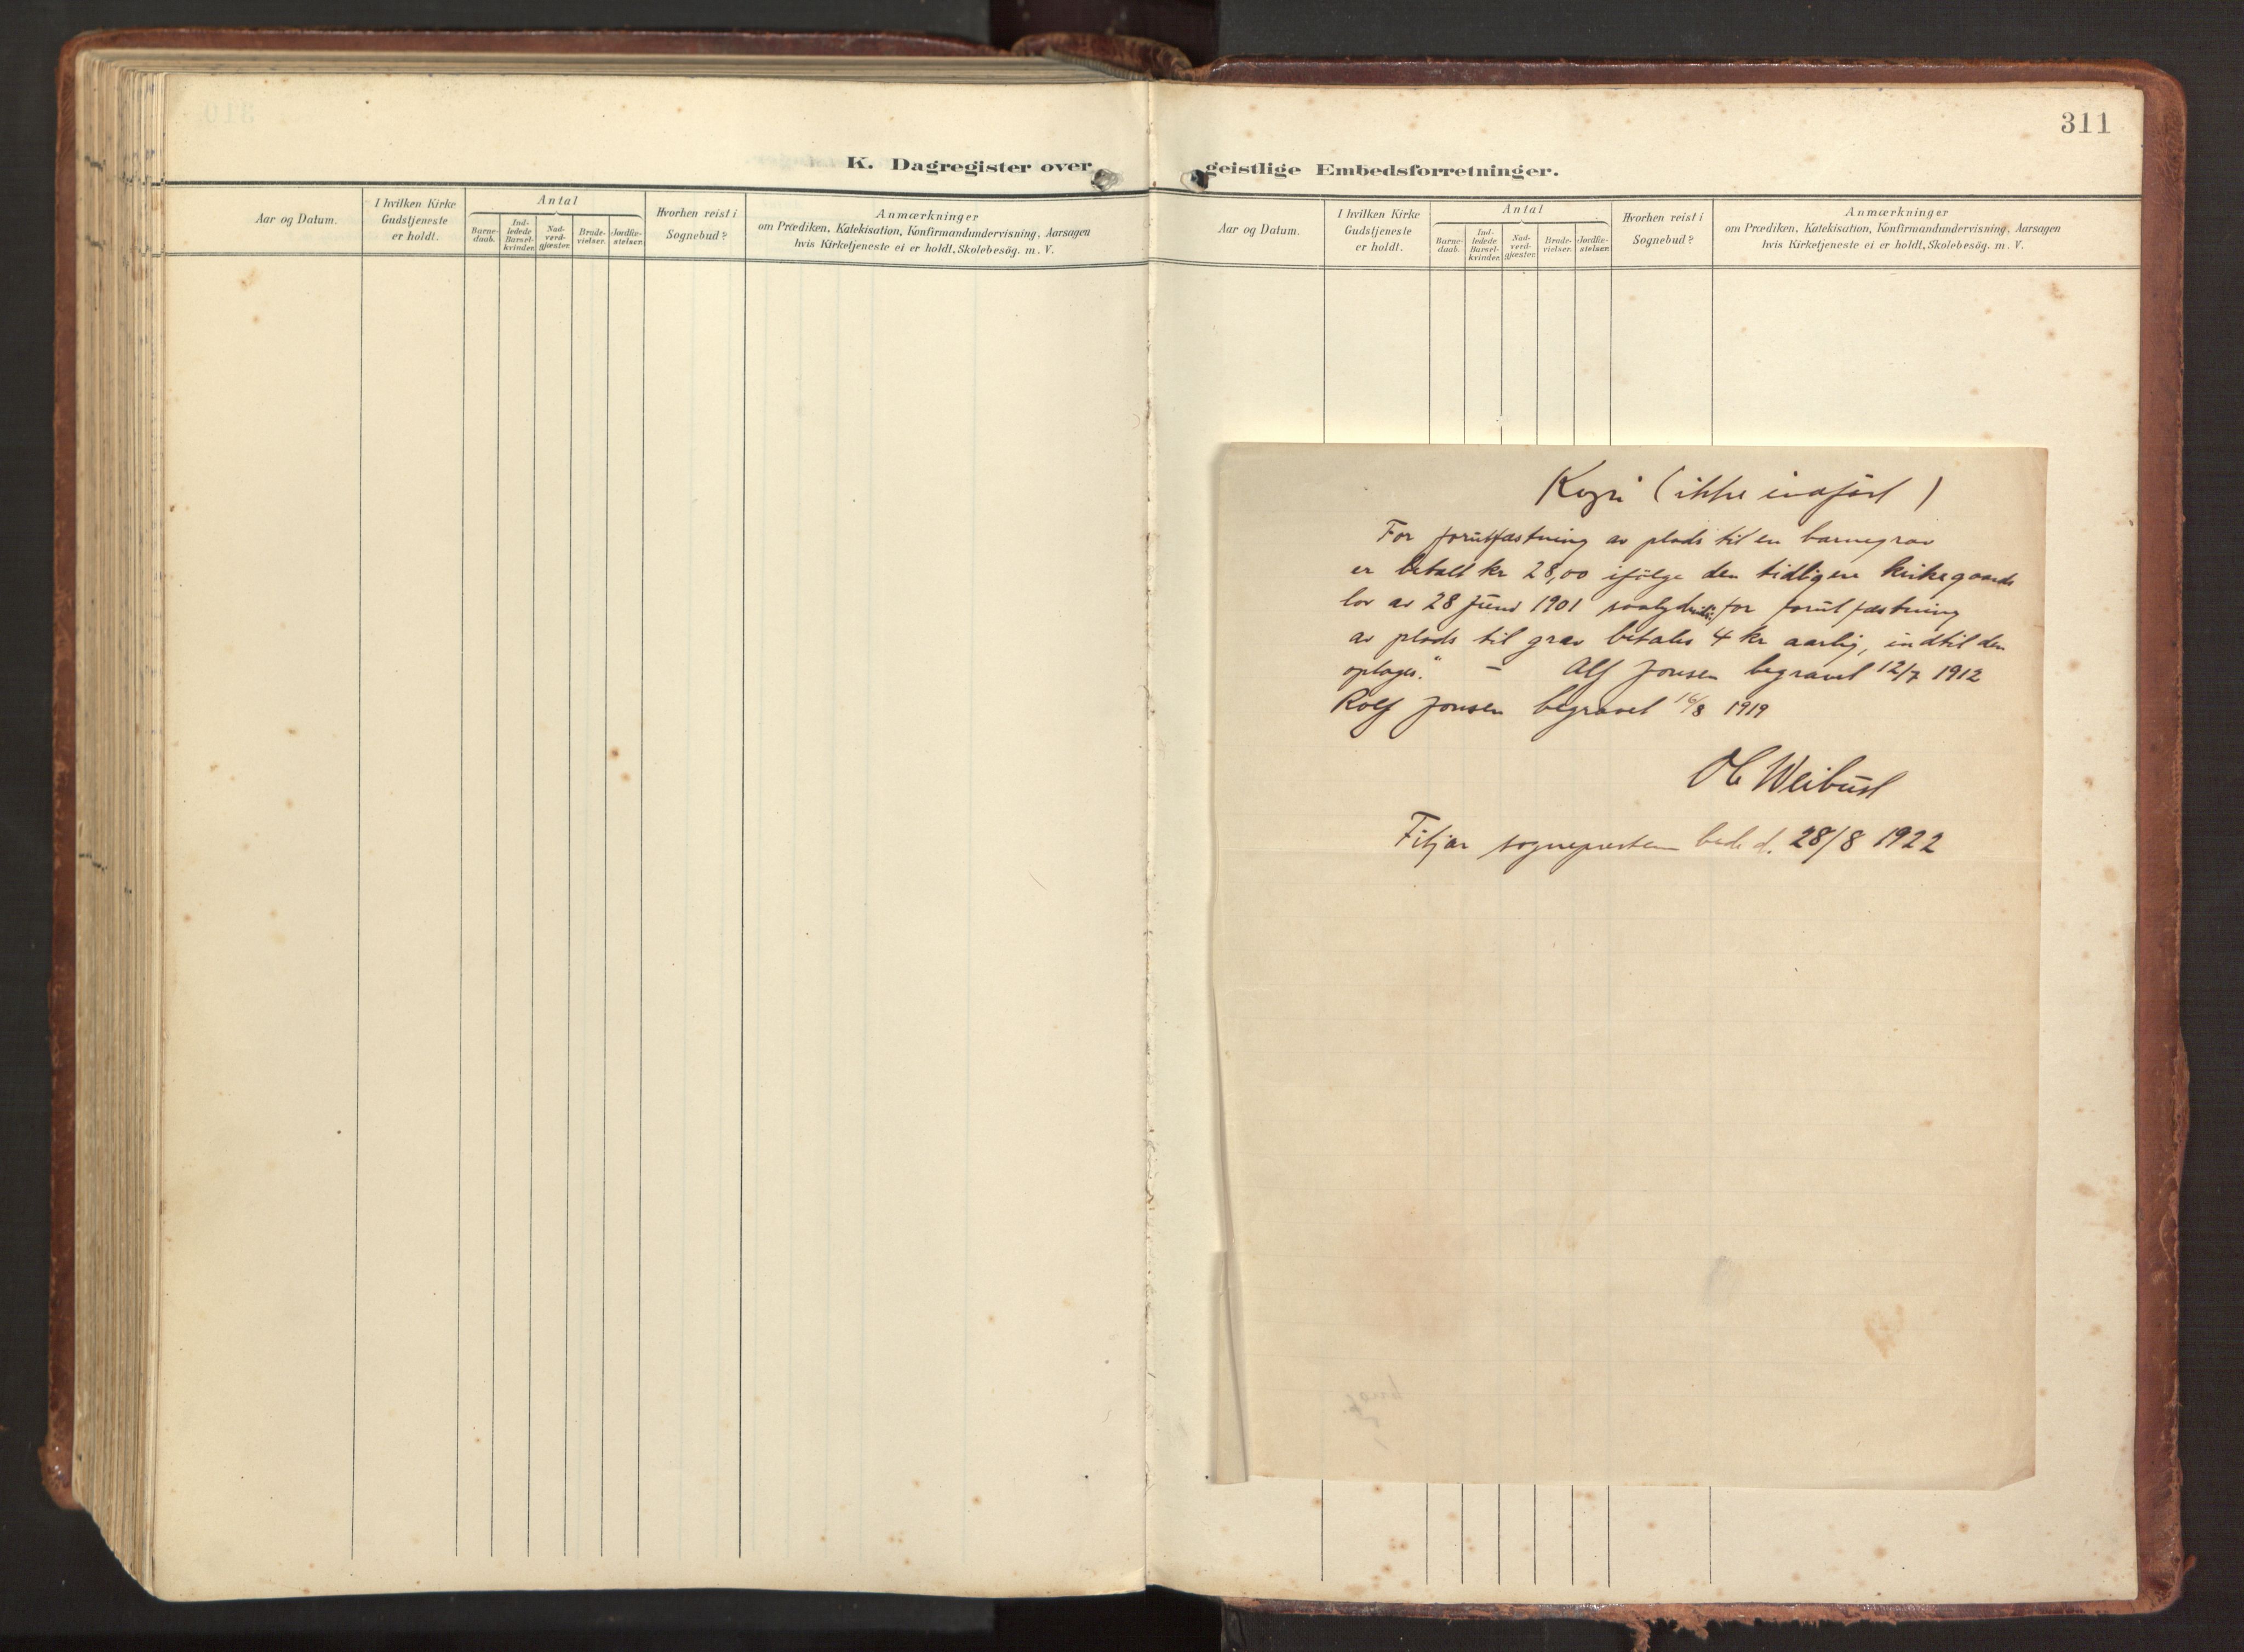 K. Dagregister over
Aar og Datum.
I hvilken Kirke
Gudstjeneste
er holdt.
Antal
Barne-
daab.
Ind-
ledede
Barsel-
kvinder.
Nad-
verd-
gjæster.
Brude-
vielser.
Jordfæ-
stelser.
Hvorhen reist i
Sognebud?
Anmærkninger
om Prædiken, Katekisation, Konfirmandundervisning, Aarsagen
hvis Kirketjeneste ei er holdt, Skolebesög. m. V.
311
geistlige Embedsforretninger.
Aar og Datum.
I hvilken Kirke
Gudstjeneste
er holdt.
Antal
Barne-
daab.
Ind-
ledede
Barsel-
kvinder.
Nad-
verd-
gjæster.
Brude-
vielser.
Jordfæ-
stelser.
Hvorhen reist i
Sognebud?
Anmærkninger
om Prædiken, Katekisation, Konfirmandundervisning, Aarsagen
hvis Kirketjeneste ei er holdt, Skolebesög. m. V.
Kopi (ikke indført)
For forutfæstning av plads til en barnegrav
er betalt kr 28,00 ifölge den tidligere kirkegaards
lov av 28 juni 1901 saalydende: for forutfæstning
av plads til grav betales 4 kr aarlig, indtil den
optages." – Alf Jonsen begravet 12/7 1912
Rolf Jonsen begravet 16/8 1919
Weibust
Fitjar sogneprestem bede d. 28/8 1922